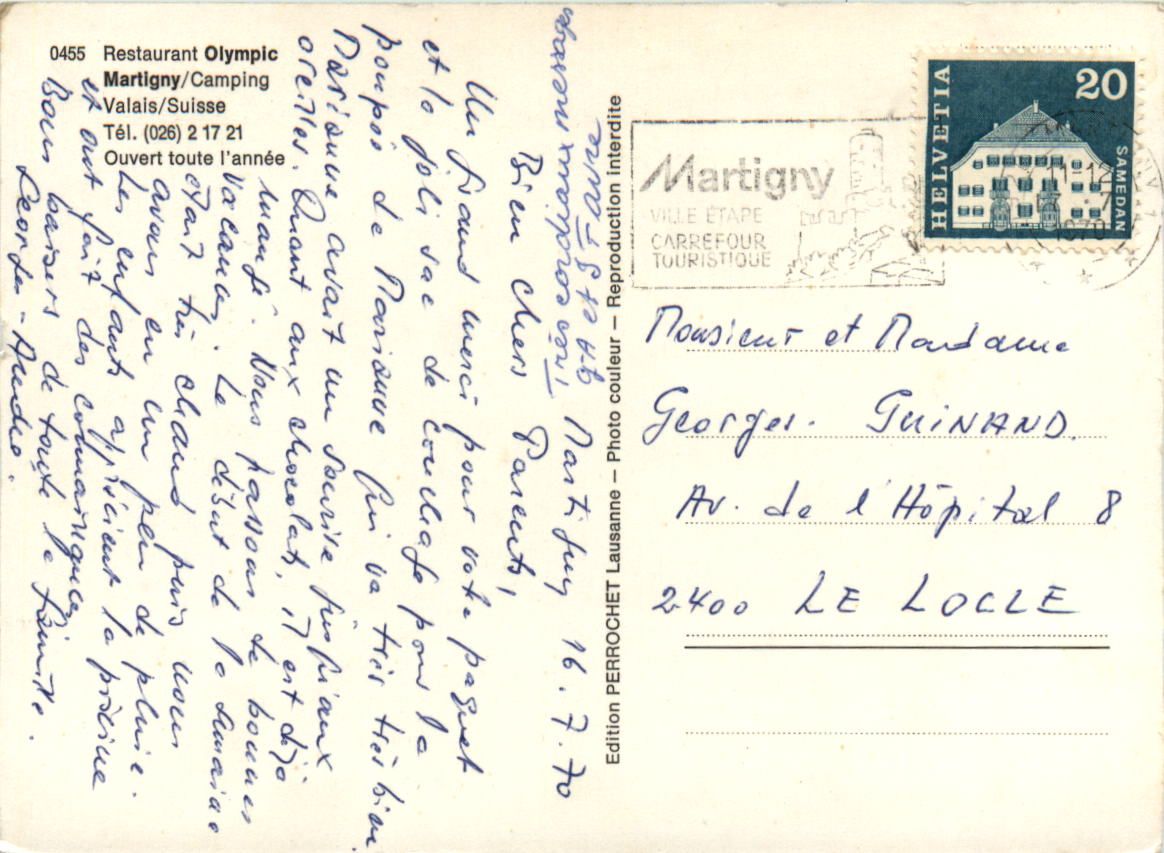 0455 Restaurant Olympic
Martigny/Camping
Valais/Suisse
Tél. (026) 2 17 21
Ouvert toute l'année
Martigny 16.7.70
Bien chers Parents,
Un grand merci pour votre paquet
et le joli sac de couchage pour la
poupée de Marianne qui va très très bien.
Marianne avait un sourire jusqu'aux
oreilles. Quant aux chocolats, il est déjà
mangé. Nous passons de bonnes
vacances. Le début de la semaine
était très chaud puis nous
avons eu un peu de pluie.
Les enfants apprécient la piscine
et ont fait des connaissances
Bons baisers de toute la famille.
Georges - Andrée
Edition PERROCHET Lausanne – Photo couleur – Reproduction interdite
Martigny
VILLE ÉTAPE
CARREFOUR
TOURISTIQUE
11-12
1970
HELVETIA
20
SAMEDAN
Monsieur et Madame
Georges GUINAND
Av. de l'Hôpital 8
2400 LE LOCLE